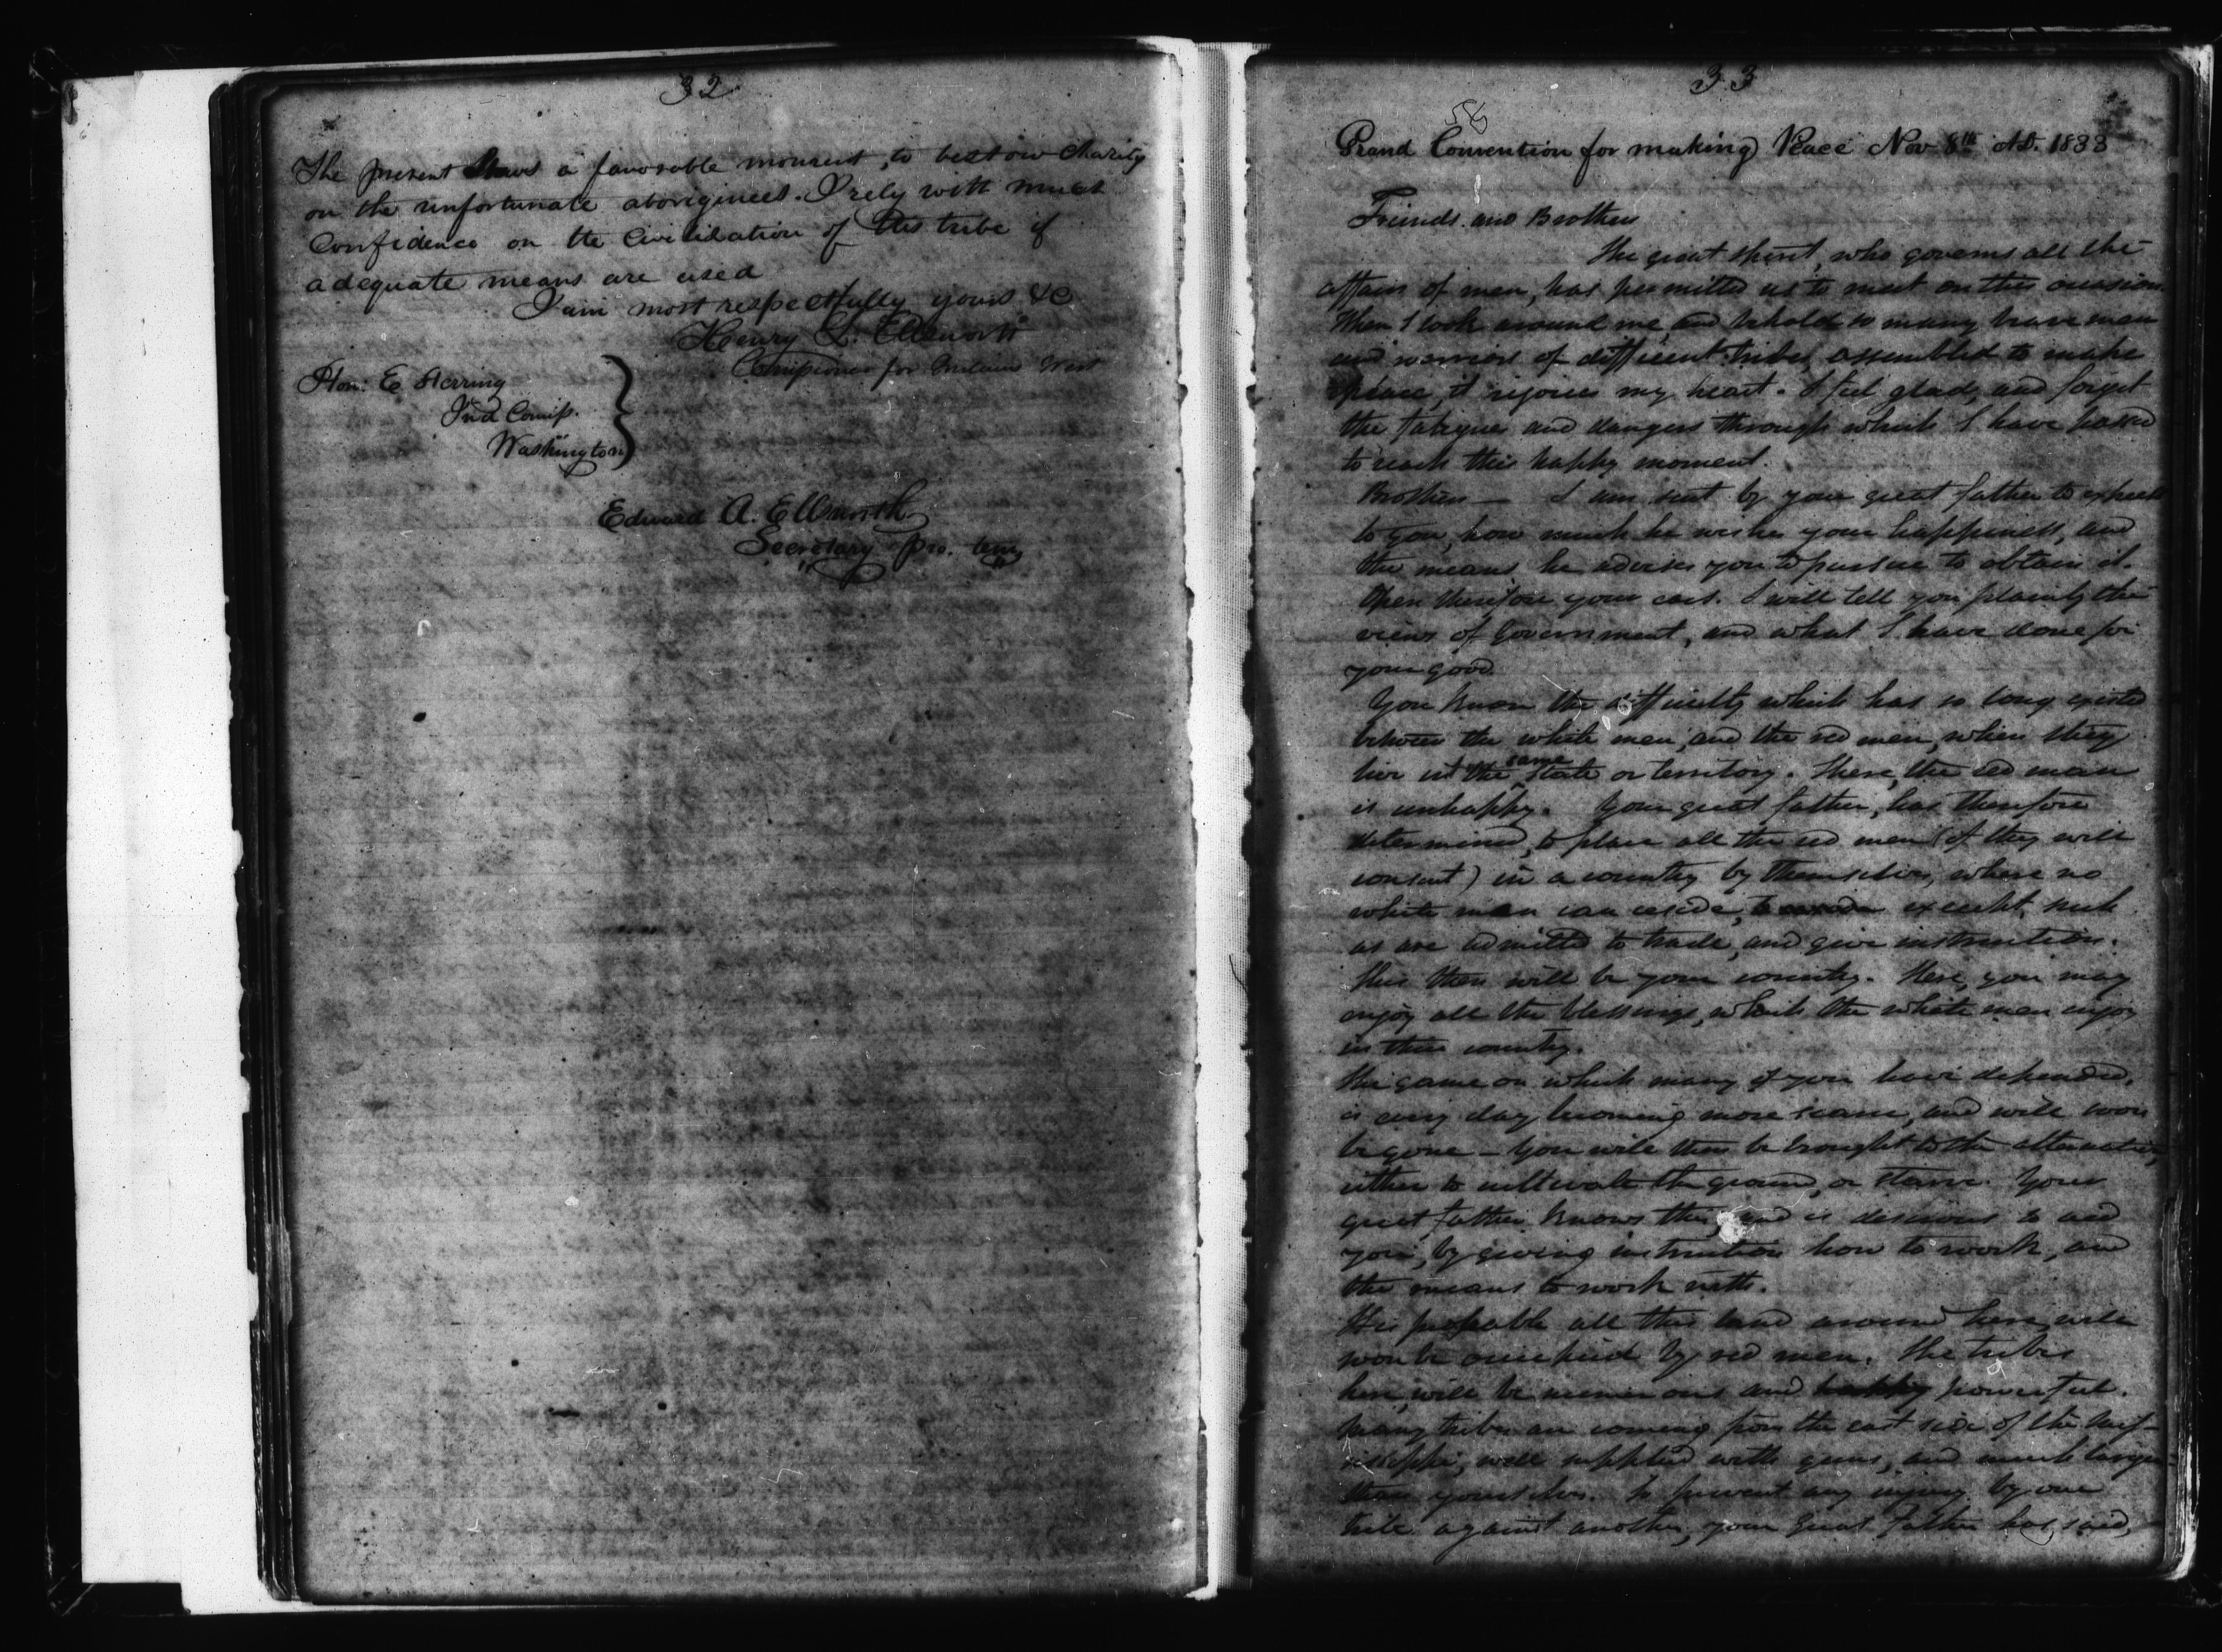 32
The present shows a favorable moment, to bestow charity
on the unfortunate aborigines. I rely with much
Confidence on the Civilization of this tribe if
adequate means are used
I am most respectfully yours &c
Henry L. Ellsworth
Comissioner for Indians West
Hon: E Herring
Ind Comiss.
Washington
Edward A. Ellsworth
Secretary pro. tem
33
56
Grand Convention for making Peace Nov 8th AD. 1833
Friends and Brothers
The great spirit, who governs all the
affairs of men, has permitted us to meet on this occasion
When I look around me and behold so many brave men
and warriors of different tribes, assembled to make
peace, it rejoices my heart. I feel glad, and forget
the fatigues and dangers through which I have passed
to reach this happy moment.
Brothers — I am sent by your great father to express
to you, how much he wishes your happiness, and
the means he advises you to pursue to obtain it.
Open therefore your ears. I will tell you plainly the
views of Government, and what I have done for
your good
You know the difficulty which has so long existed
between the white men, and the red men, when they
live in the same state or territory. There, the red man
is unhappy. Your great father, has therefore
determined, to place all the red men (if they will
consent) in a country by themselves, where no
white man can reside, except, such
as are admitted to trade, and give instruction.
This then will be your country. Here, you may
enjoy all the blessings, which the white men enjoy
in their country.
The game on which many of you have depended,
is every day becoming more scarce, and will soon
be gone — You will then be brought to the alternative,
either to cultivate the ground, or starve. Your
great father knows this, and is desirous to aid
you, by giving instruction how to work, and
the means to work with.
It is probable all this land around here, will
soon be occupied by red men. The tribes
here, will be numerous and happy powerful.
Many tribes are coming from the east side of the Mis-
sissippi, well supplied with guns, and much larger
than yourselves. To prevent any injury by one
tribe against another, your Great Father has said,